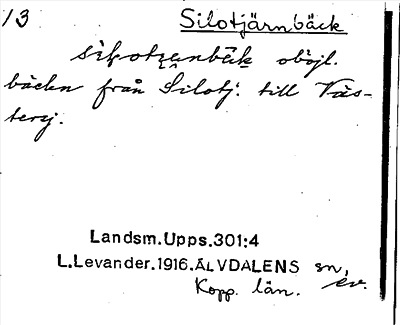 13 Silotjärnbäck
obojl.
bäcken från Silotj. till Väs-
terj.
Landsm.Upps.301:4
L.Levander.1916.ÄLVDALENS sn,
Kopp. län. ev.